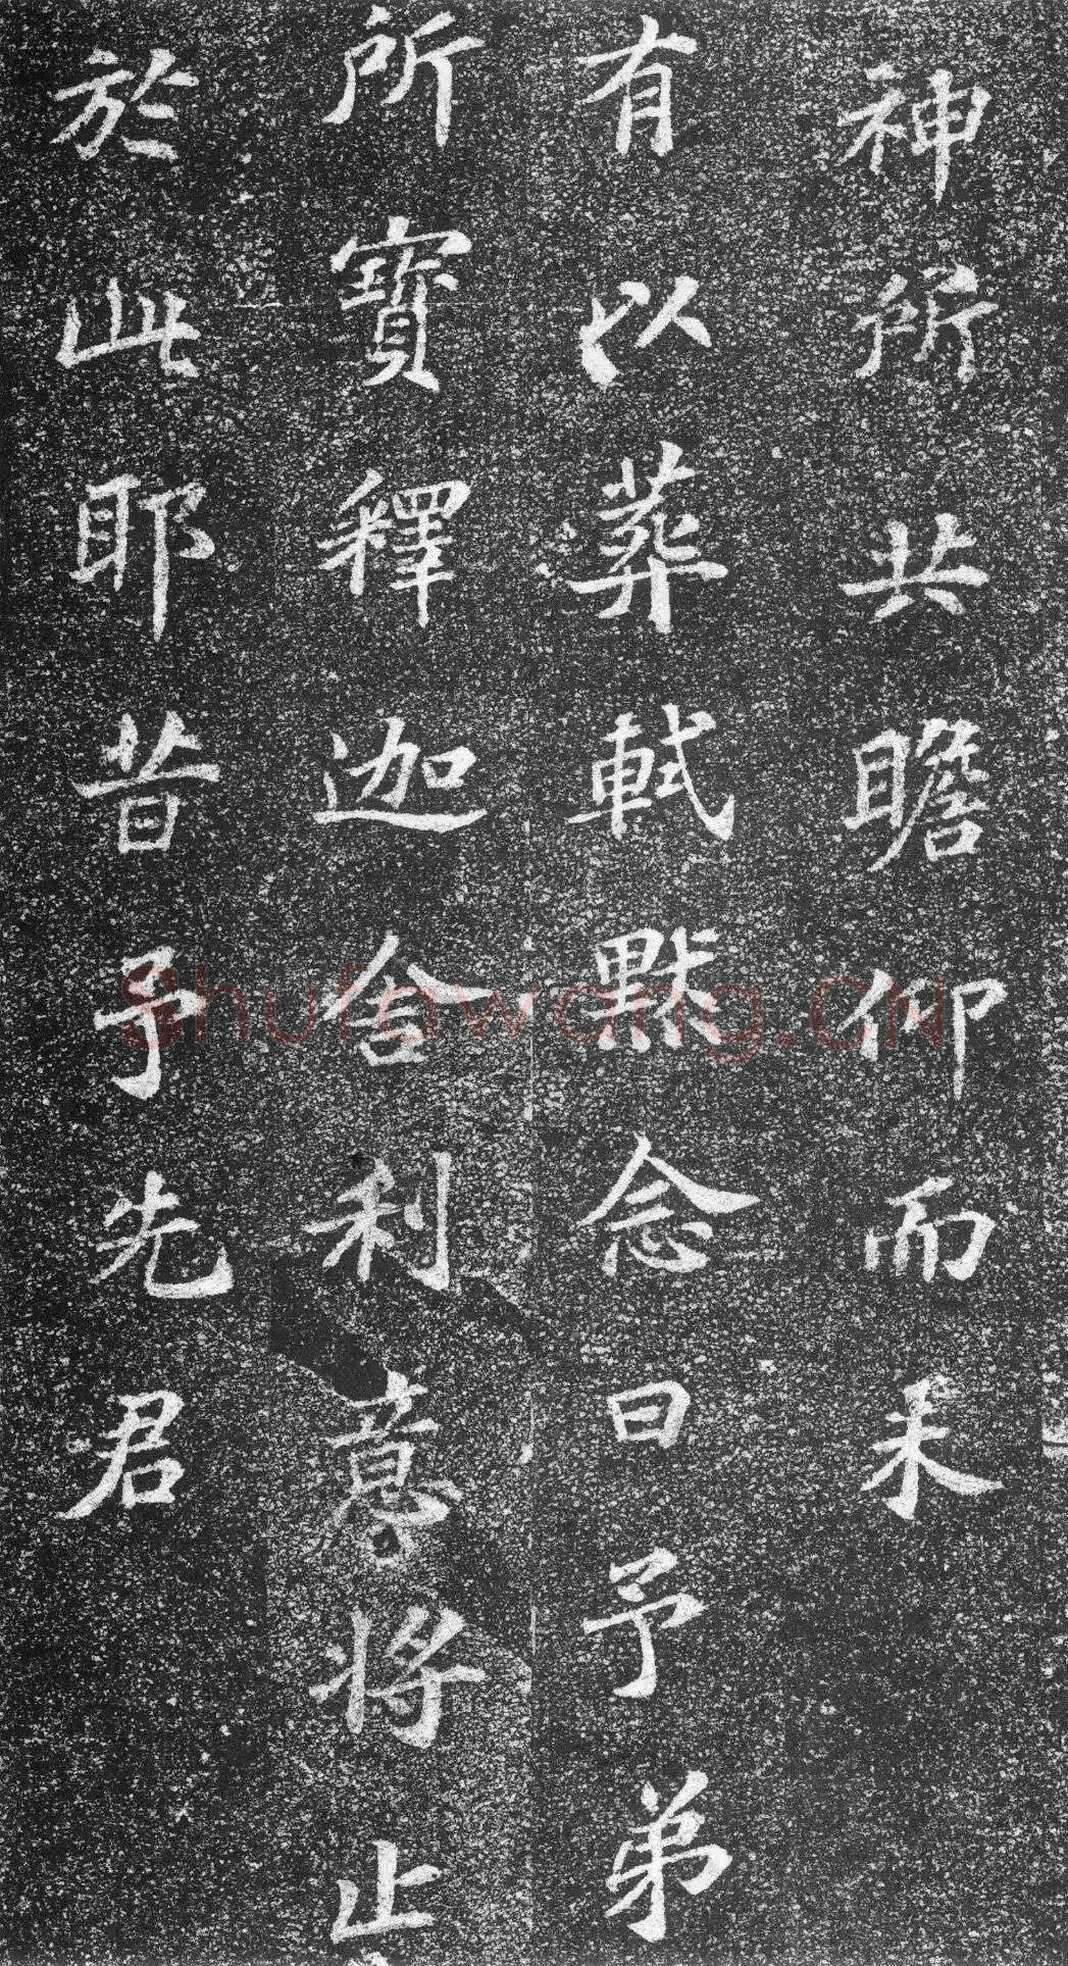 神所共瞻仰而未
有以葬軾默念曰予弟
所寶釋迦舍利意將止
於此耶昔予先君
Shufawang.CN